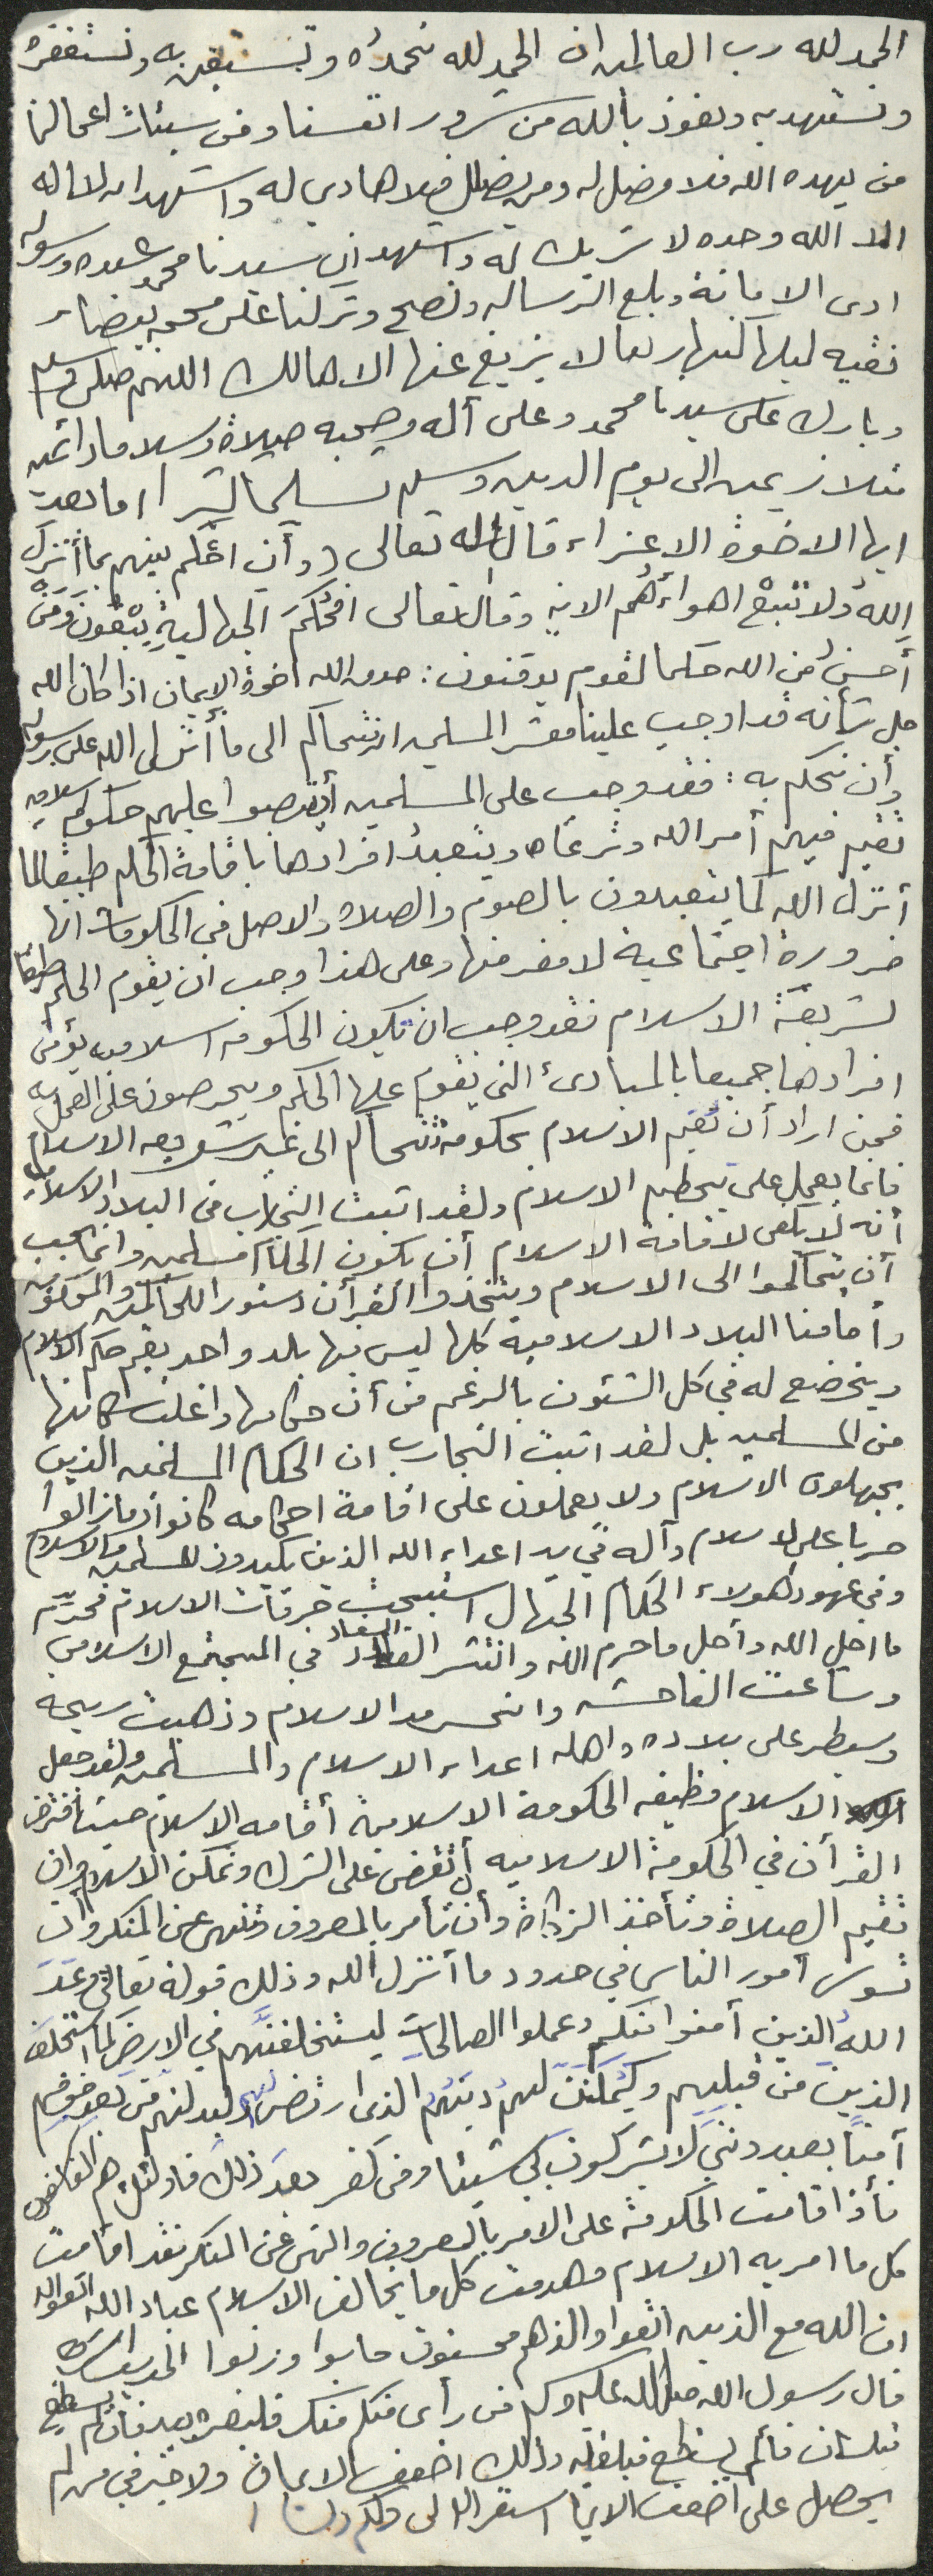 الحمد لله رب العالمين ان الحمد لله نحمده ونستعين به ونستغفره
ونستهديه ونعوذ بالله من شرور انفسنا ومن سيئات اعمالنا
من يهده الله فلا مضل له ومن يضلل فلا هادي له واشهد ان لا اله
الا الله وحده لا شريك له واشهد ان سيدنا محمد عبده ورسوله
ادى الامانة وبلغ الرساله ونصح وتركنا على محجه بيضاء
نقيه ليلها كنهارها لا يزيغ عنها الا هالك اللهم صلى وسلم
وبارك على سيدنا محمد وعلى آله وصحبه صلاة وسلاما دائمين
متلازيمين الى يوم الدين وسلم تسليما كثيرا اما بعد
ايها الاخوة الاعزاء قال الله تعالى (وأن احكم بينهم بما أنزل
الله ولا تتبع اهواءهم الايه وقال تعالى افحكم الجاهلية يبغون ومن
أحسن من الله حكما لقوم يوقنون: صدق الله اخوة الايمان اذا كان الله
جل شأنه قد اوجب علينا معشر المسلمين ان نتحاكم الى ما أنزل الله على رسوله
وأن نحكم به: فقد وجب على المسلمين أن ينصبوا عليهم حكومه اسلاميه
تقيم فيهم أمر الله وشرعاه ويتعبد افرادها باقامة الحكم طبقا لما
أنزل الله كما يتعبدون بالصوم والصلاه والاصل في الحكومات انها
ضرورة اجتماعية لا مفر منها وعلى هذا وجب ان يقوم الحكم طبقا
لشريعة الاسلام فقد وجب ان تكون الحكومه اسلاميه يؤمن
افرادها جميعا بالمبادىء التى يقوم عليها الحكم ويحرصون على العمل به
فمن اراد أن يقيم الاسلام بحكومة تتحاكم الى غير شريعه الاسلام
فانما يعمل على تحطيم الاسلام ولقد اثبت التجارب في البلاد الاسلاميه
أنه لا يكفى لاقامة الاسلام أن يكون الحكام مسلمين وانما يجب
أن يتحاكموا الى الاسلام ويتخذوا القرأن دستورا للحاكمين والمحكومين
وأمامنا البلاد الاسلامية كلها ليس بها بلد واحد يقيم حكم الاسلام
ويخضع له في كل الشئون بالرغم من أن حكامها واغلب سكانها
من المسلمين بل لقد اثبت التجارب ان الحكام المسلمين الذين
يجهلون الاسلام ولا يعملون على اقامة احكامه كانوا وما زالوا
حربا على الاسلام وآله في يد اعداء الله الذين يكيدون للمسلمين والاسلام
وفي عهود هولاء الحكام الجهال استبيحت حرمات الاسلام فحرم
ما احل الله وأحل ما حرم الله وانتشر الفساد في المجتمع الاسلامي
وشاعت الفاحشه وانحسر مد الاسلام وذهبت ريحه
وسيطر على بلاده واهله اعداء الاسلام والمسلمين ولقد جعل
الاسلام وظيفه الحكومة الاسلامية أقامه الاسلام حيث افترض
القرأن في الحكومة الاسلاميه أن تقضى على الشرك وتمكن الاسلام وان
تقيم الصلاة وتأخذ الزكاة وأن تأمر بالمعروف وتنهى عن المنكر وان
تسوس أمور الناس في حدود ما أنزل الله وذلك قوله تعالى وعد
الله الذين آمنوا منكم وعملوا الصالحات ليستخلفنهم في الارض كما استخلف
الذين من قبلهم وليمكنن لهم دينهم الذى ارتضى لهم وليبدلنهم من بعد خوفهم
آمنا يعبدونني لا يشركون بي شيئا ومن كفر بعد ذلك فاولئك هم الفاسقون
فأذا قامت الحكومة على الامر بالمعروف والنهى عن المنكر فقد اقامت
كل ما امر به الاسلام وهدمت كل ما يخالف الاسلام عباد الله اتقوا الله
ان الله مع الذين اتقوا والذهم محسنون
قال رسول الله صلى الله عليه وسلم من رأى منكم منكر فليغيره بيده فأن لم يستطع
فبلسان فألم يستطع فبلقبه وذلك اضعف الايمان ولا خير في من لم
يحصل على أضعف الايما استغفر الله لى ولكم